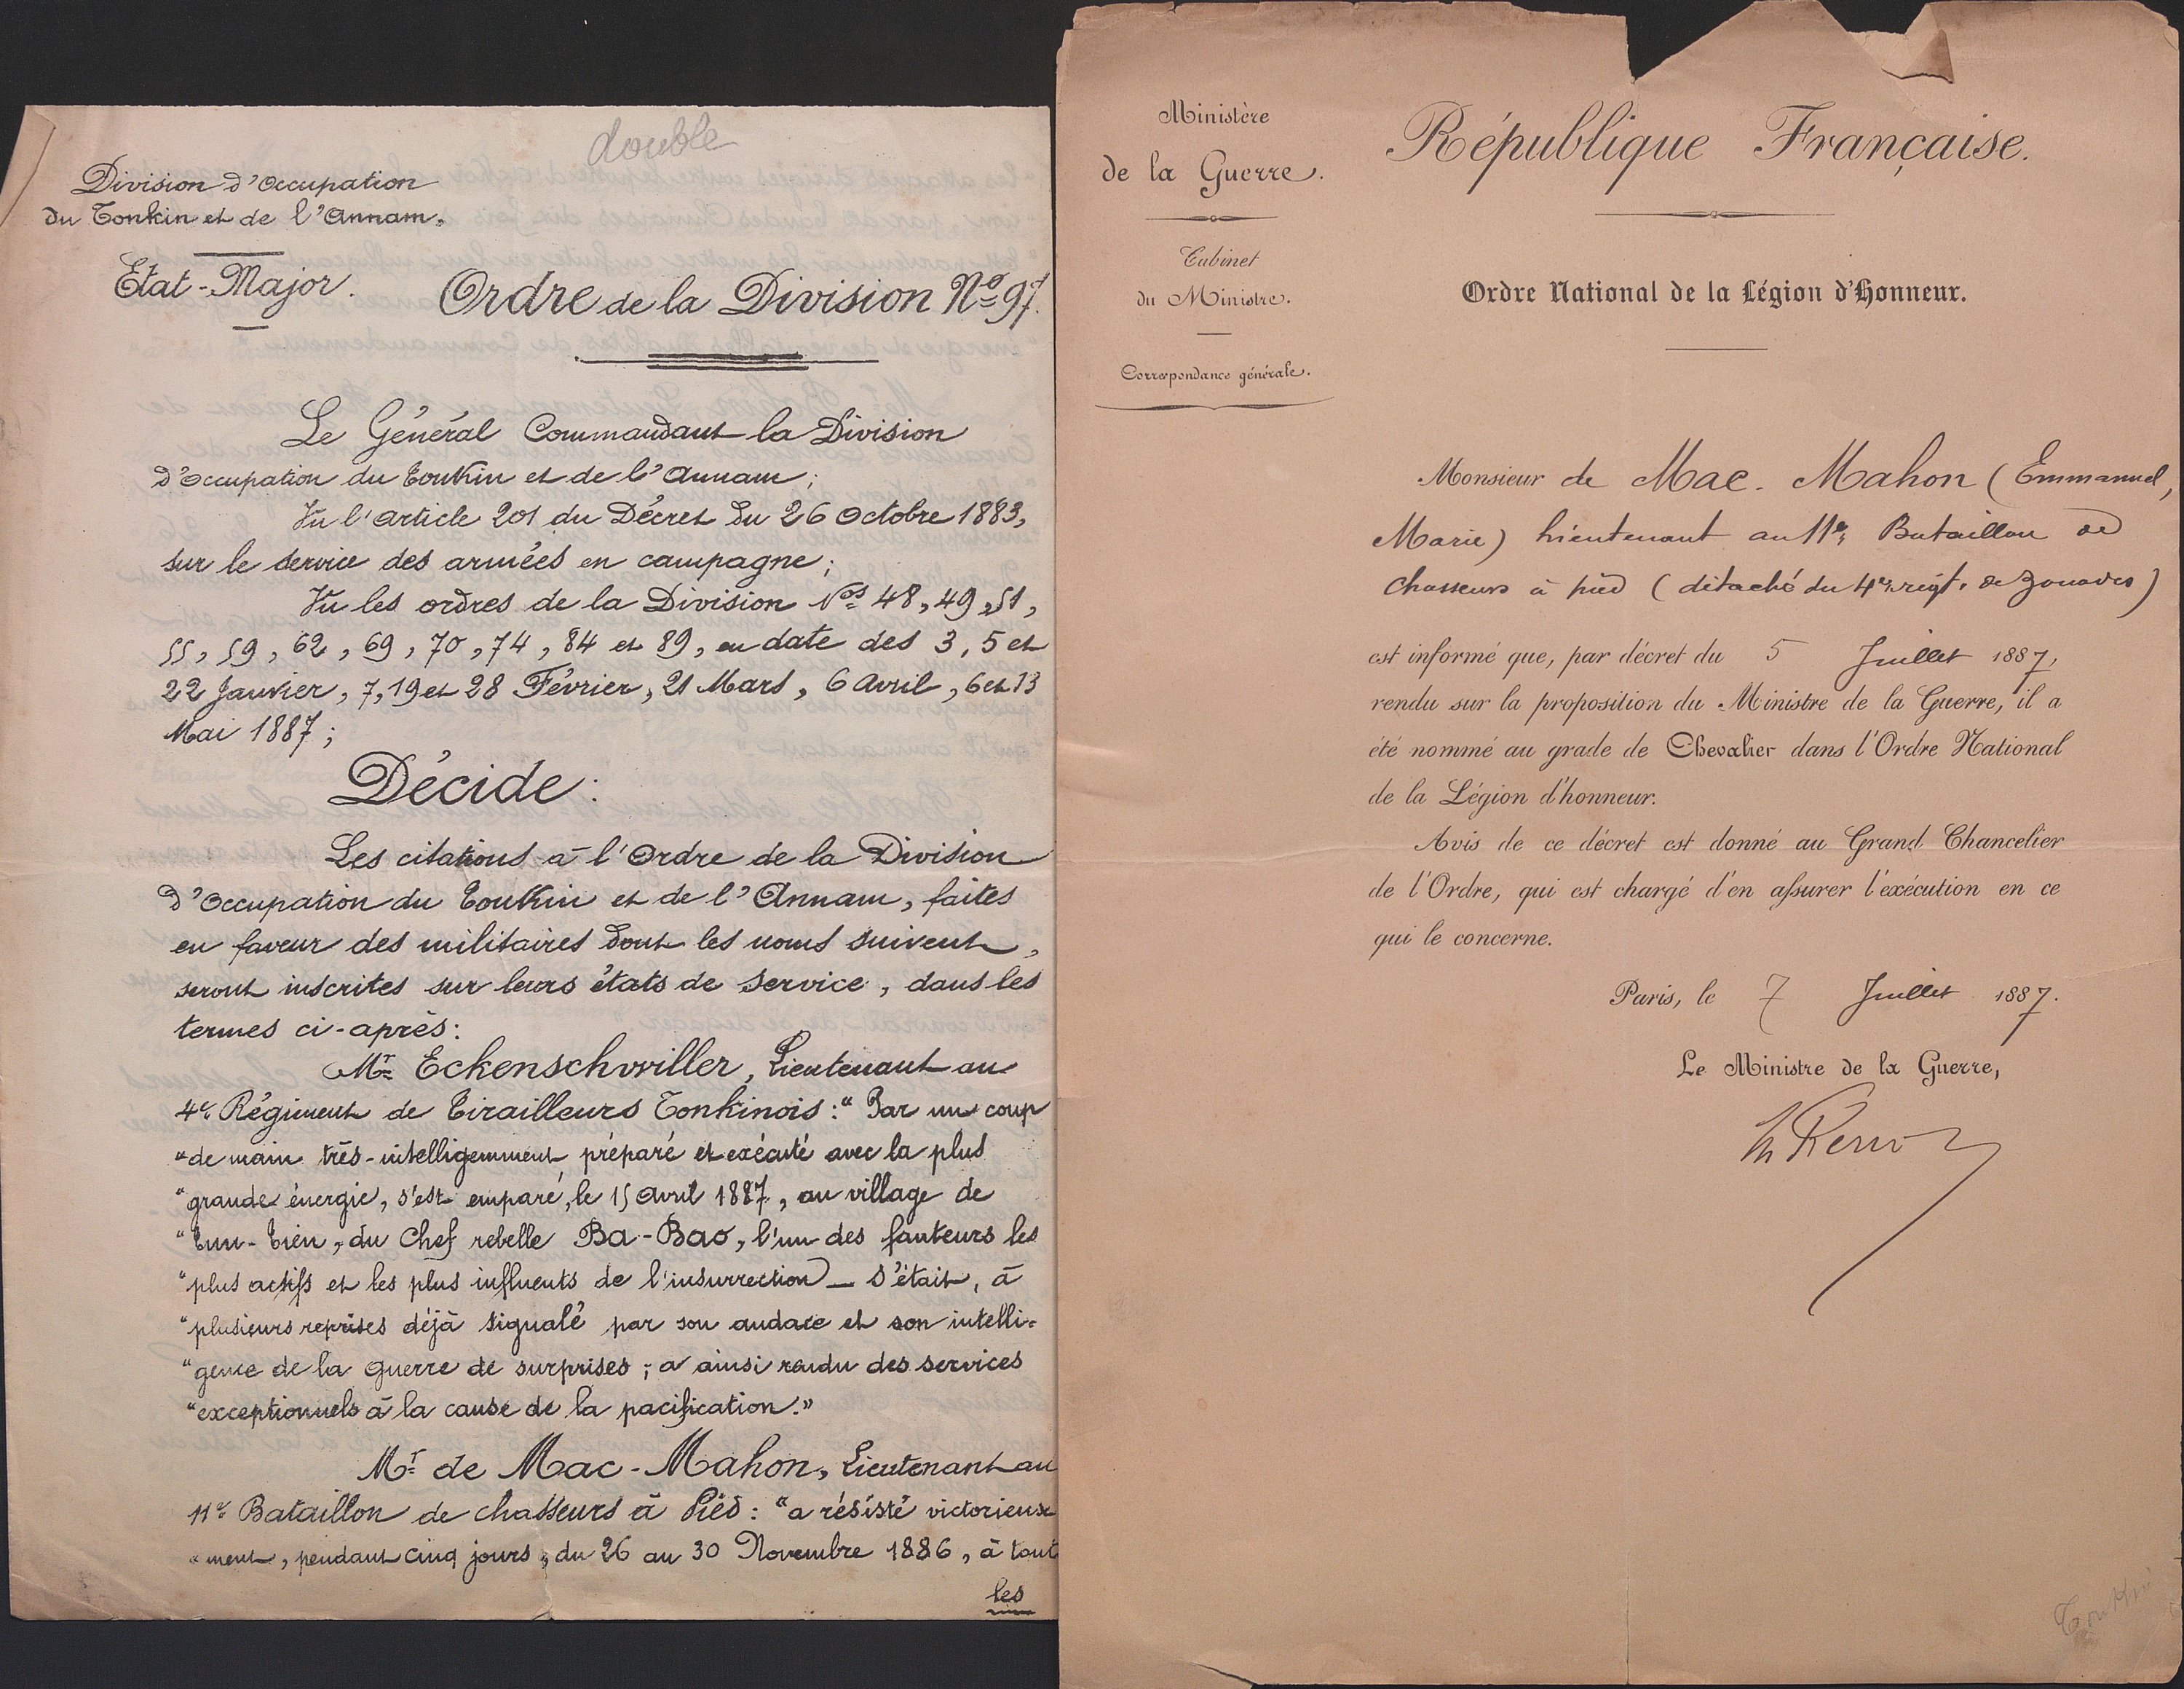 double
Division d'Occupation
du Tonkin et de l'Annam.
Etat-Major.
Ordre de la Division Nº 97.
Le Général Commandant la Division
d'Occupation du Tonkin et de l'Annam ;
Vu l'article 201 du Décret du 26 Octobre 1883,
sur le service des armées en campagne ;
Vu les ordres de la Division Nos 48, 49, 51,
55, 59, 62, 69, 70, 74, 84 et 89, en date des 3, 5 et
22 Janvier, 7, 19 et 28 Février, 21 Mars, 6 Avril, 6 et 13
Mai 1887 ;
Décide :
Les citations à l'Ordre de la Division
d'Occupation du Tonkin et de l'Annam, faites
en faveur des militaires dont les noms suivent,
seront inscrites sur leurs états de service, dans les
termes ci-après :
Mr Eckenschwiller, Lieutenant au
4e Régiment de Tirailleurs Tonkinois : "Par un coup
"de main très-intelligemment préparé et exécuté avec la plus
"grande énergie, s'est emparé, le 15 Avril 1887, au village de
"Tun-Tien, du Chef rebelle Ba-Bao, l'un des fauteurs les
"plus actifs et les plus influents de l'insurrection — S'était, à
"plusieurs reprises déjà signalé par son audace et son intelli-
"gence de la guerre de surprises ; a ainsi rendu des services
"exceptionnels à la cause de la pacification."
Mr de Mac-Mahon, Lieutenant au
11e Bataillon de chasseurs à Pied : "a résisté victorieuse
"ment, pendant cinq jours, du 26 au 30 Novembre 1886, à tout
les
Ministère
de la Guerre.
Cabinet
du Ministre.
Correspondance générale.
République Française.
Ordre National de la Légion d'Honneur.
Monsieur de Mac-Mahon (Emmanuel,
Marie) Lieutenant au 11e Bataillon de
Chasseurs à pied (détaché du 4e régt. de Zouaves)
est informé que, par décret du 5 Juillet 1887,
rendu sur la proposition du Ministre de la Guerre, il a
été nommé au grade de Chevalier dans l'Ordre National
de la Légion d'honneur.
Avis de ce décret est donné au Grand Chancelier
de l'Ordre, qui est chargé d'en assurer l'exécution en ce
qui le concerne.
Paris, le 7 Juillet 1887.
Le Ministre de la Guerre,
Tonkin